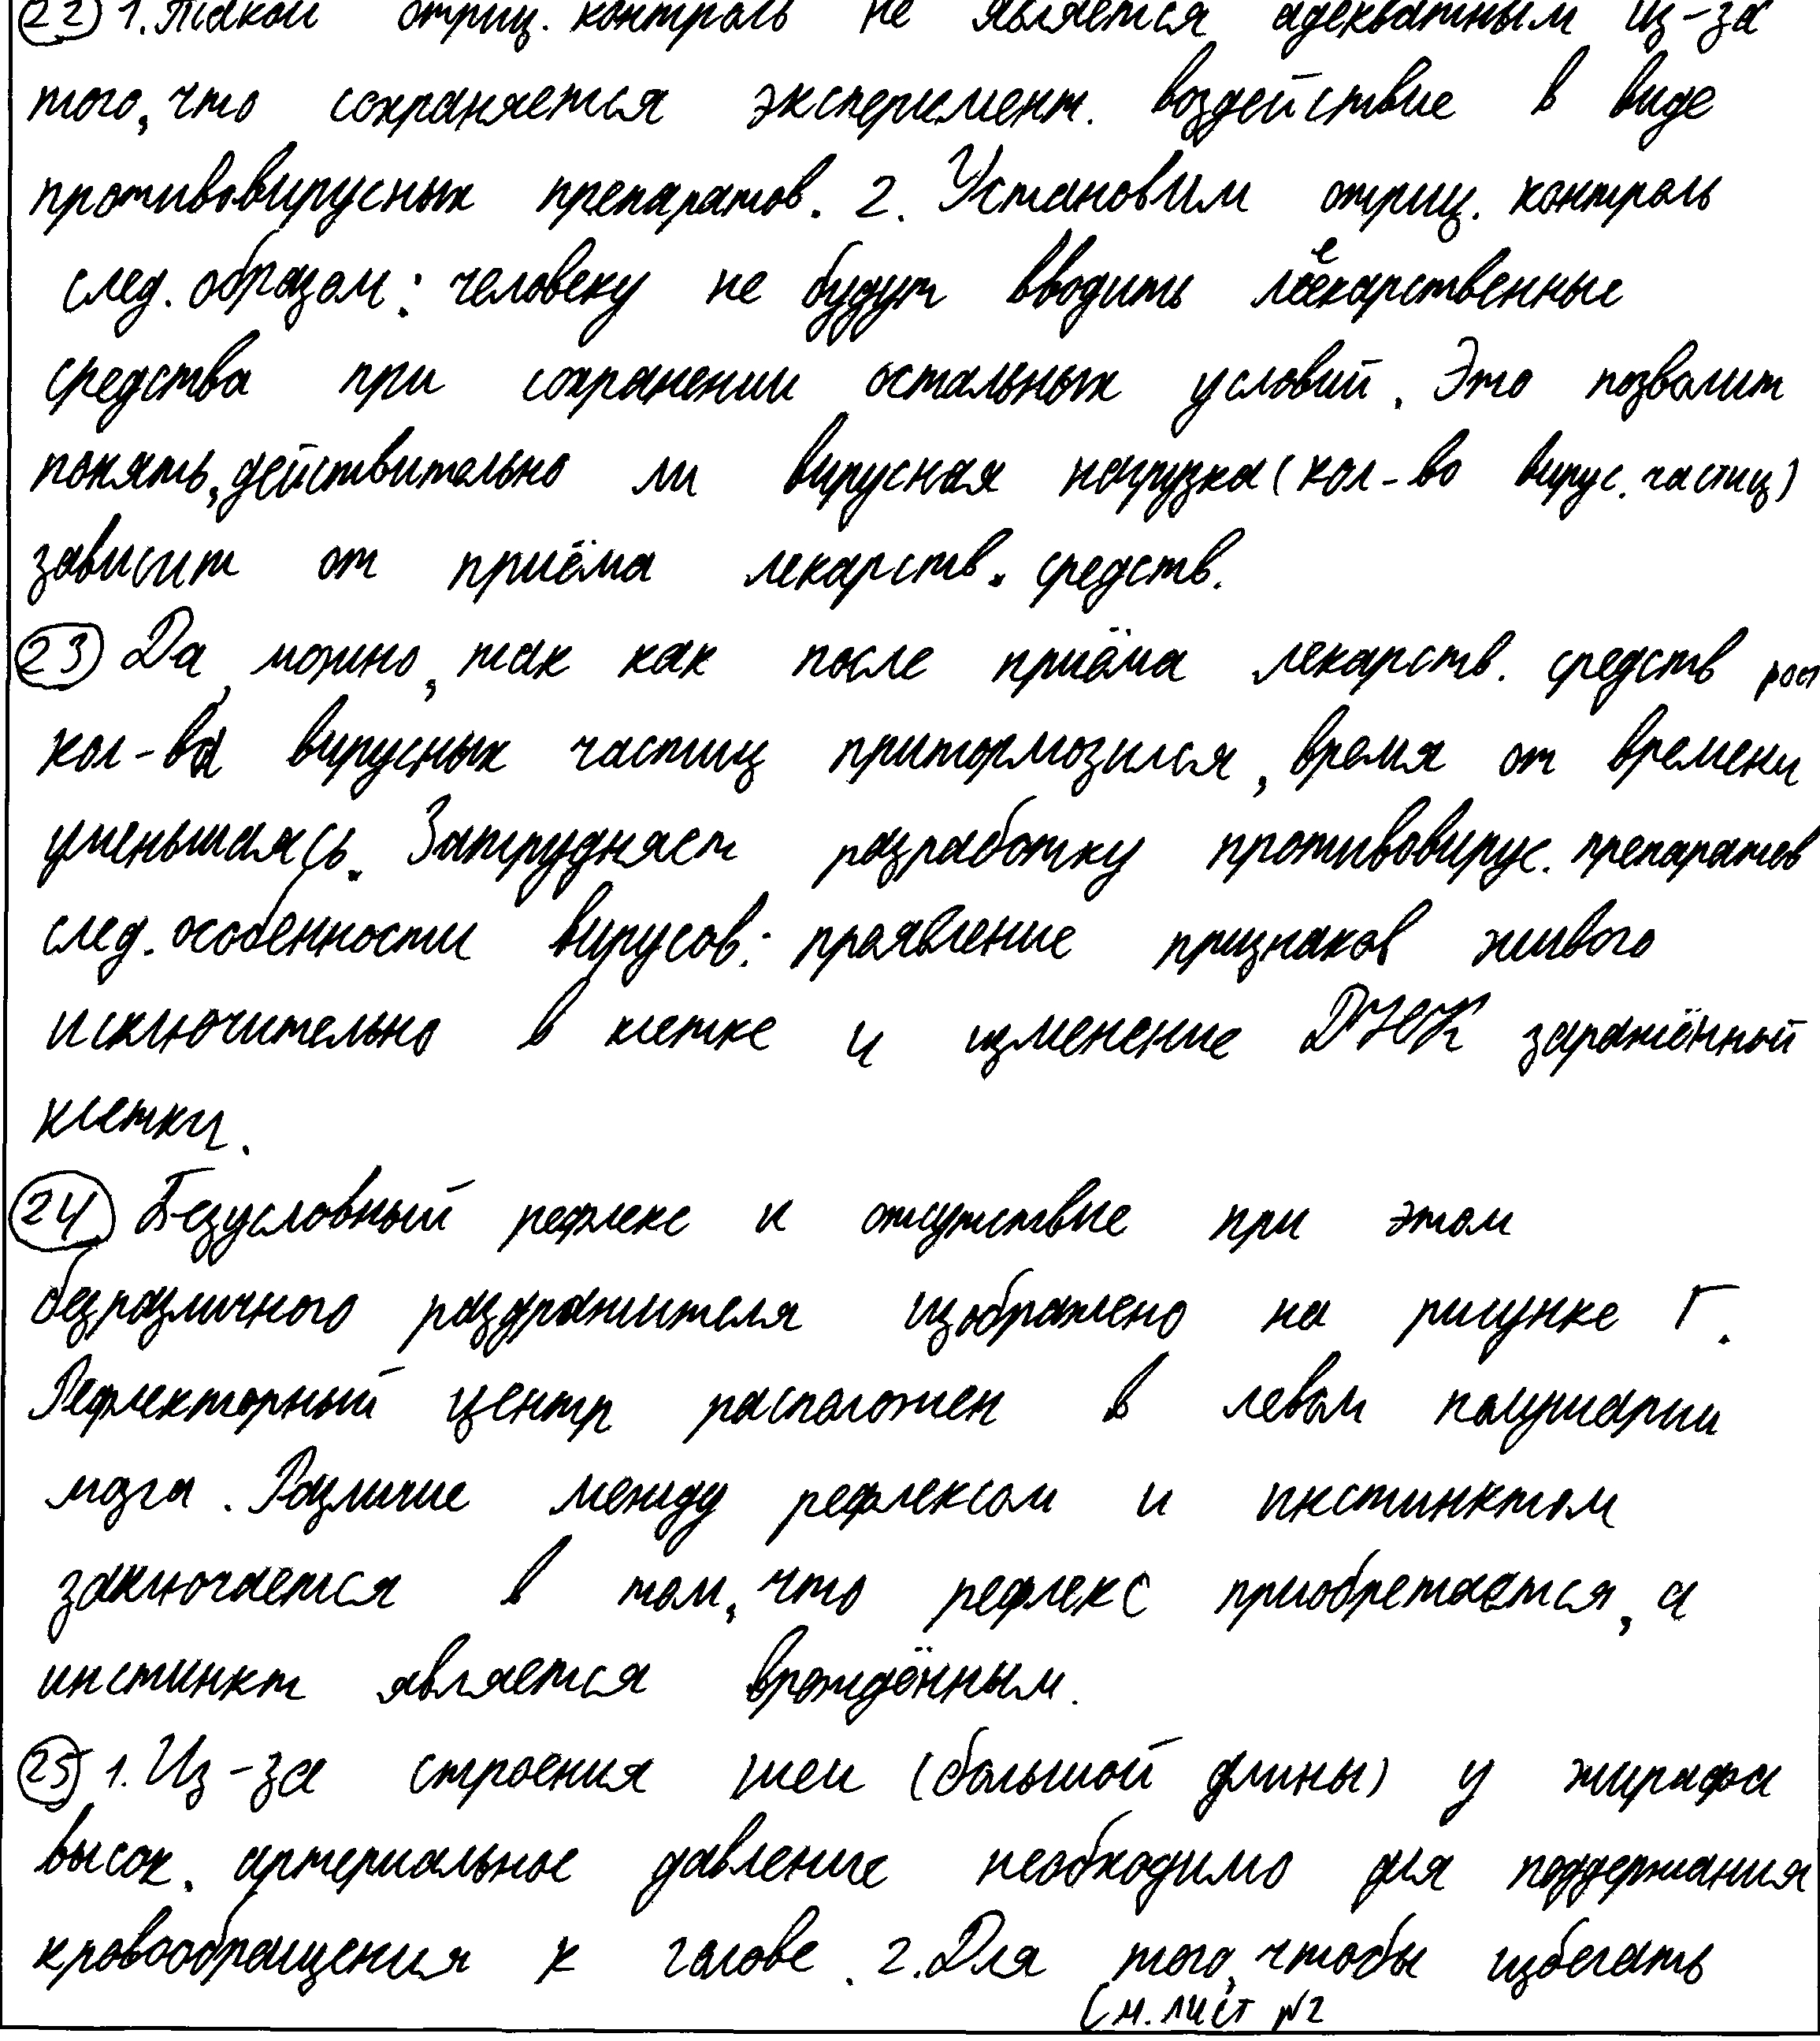 22 1. Такой отриц. контроль не является адекватным из-за
того, что сохраняется эксперимент. воздействие в виде
противовирусных препаратов. 2. Установим отриц. контроль
след. образом: человеку не будут вводить лекарственные
средства при сохранении остальных условий. Это позволит
понять, действительно ли вирусная нагрузка (кол-во вирус. частиц)
зависит от приёма лекарств. средств.
23 Да, можно, так как после приёма лекарств. средств рост
кол-ва вирусных частиц притормозился, время от времени
уменьшаясь. Затрудняет разработку противовирус. препаратов
след. особенности вирусов: проявление признаков живого
исключительно в клетке и изменение ДНК заражённой
клетки.
24 Безусловный рефлекс и отсутствие при этом
безразличного раздражителя изображено на рисунке Г.
Рефлекторный центр расположен в левом полушарии
мозга. Различие между рефлексом и инстинктом
заключается в том, что рефлекс приобретается, а
инстинкт является врождённым.
25 1. Из-за строения шеи (большой длины) у жирафа
высок. артериальное давление необходимо для поддержания
кровообращения к голове. 2. Для того, чтобы избегать
См. лист №2